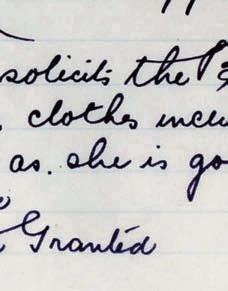 solicits the
clothes
as. she is
Granted